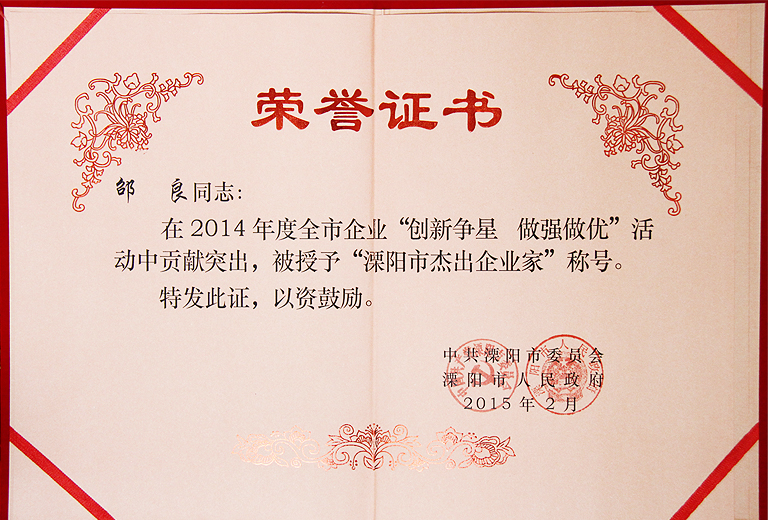 荣誉证书
邵 良同志：
在2014年度全市企业“创新争星 做强做优”活
动中贡献突出，被授予“溧阳市杰出企业家”称号。
特发此证，以资鼓励。
中共溧阳市委员会
溧阳市人民政府
2015年2月